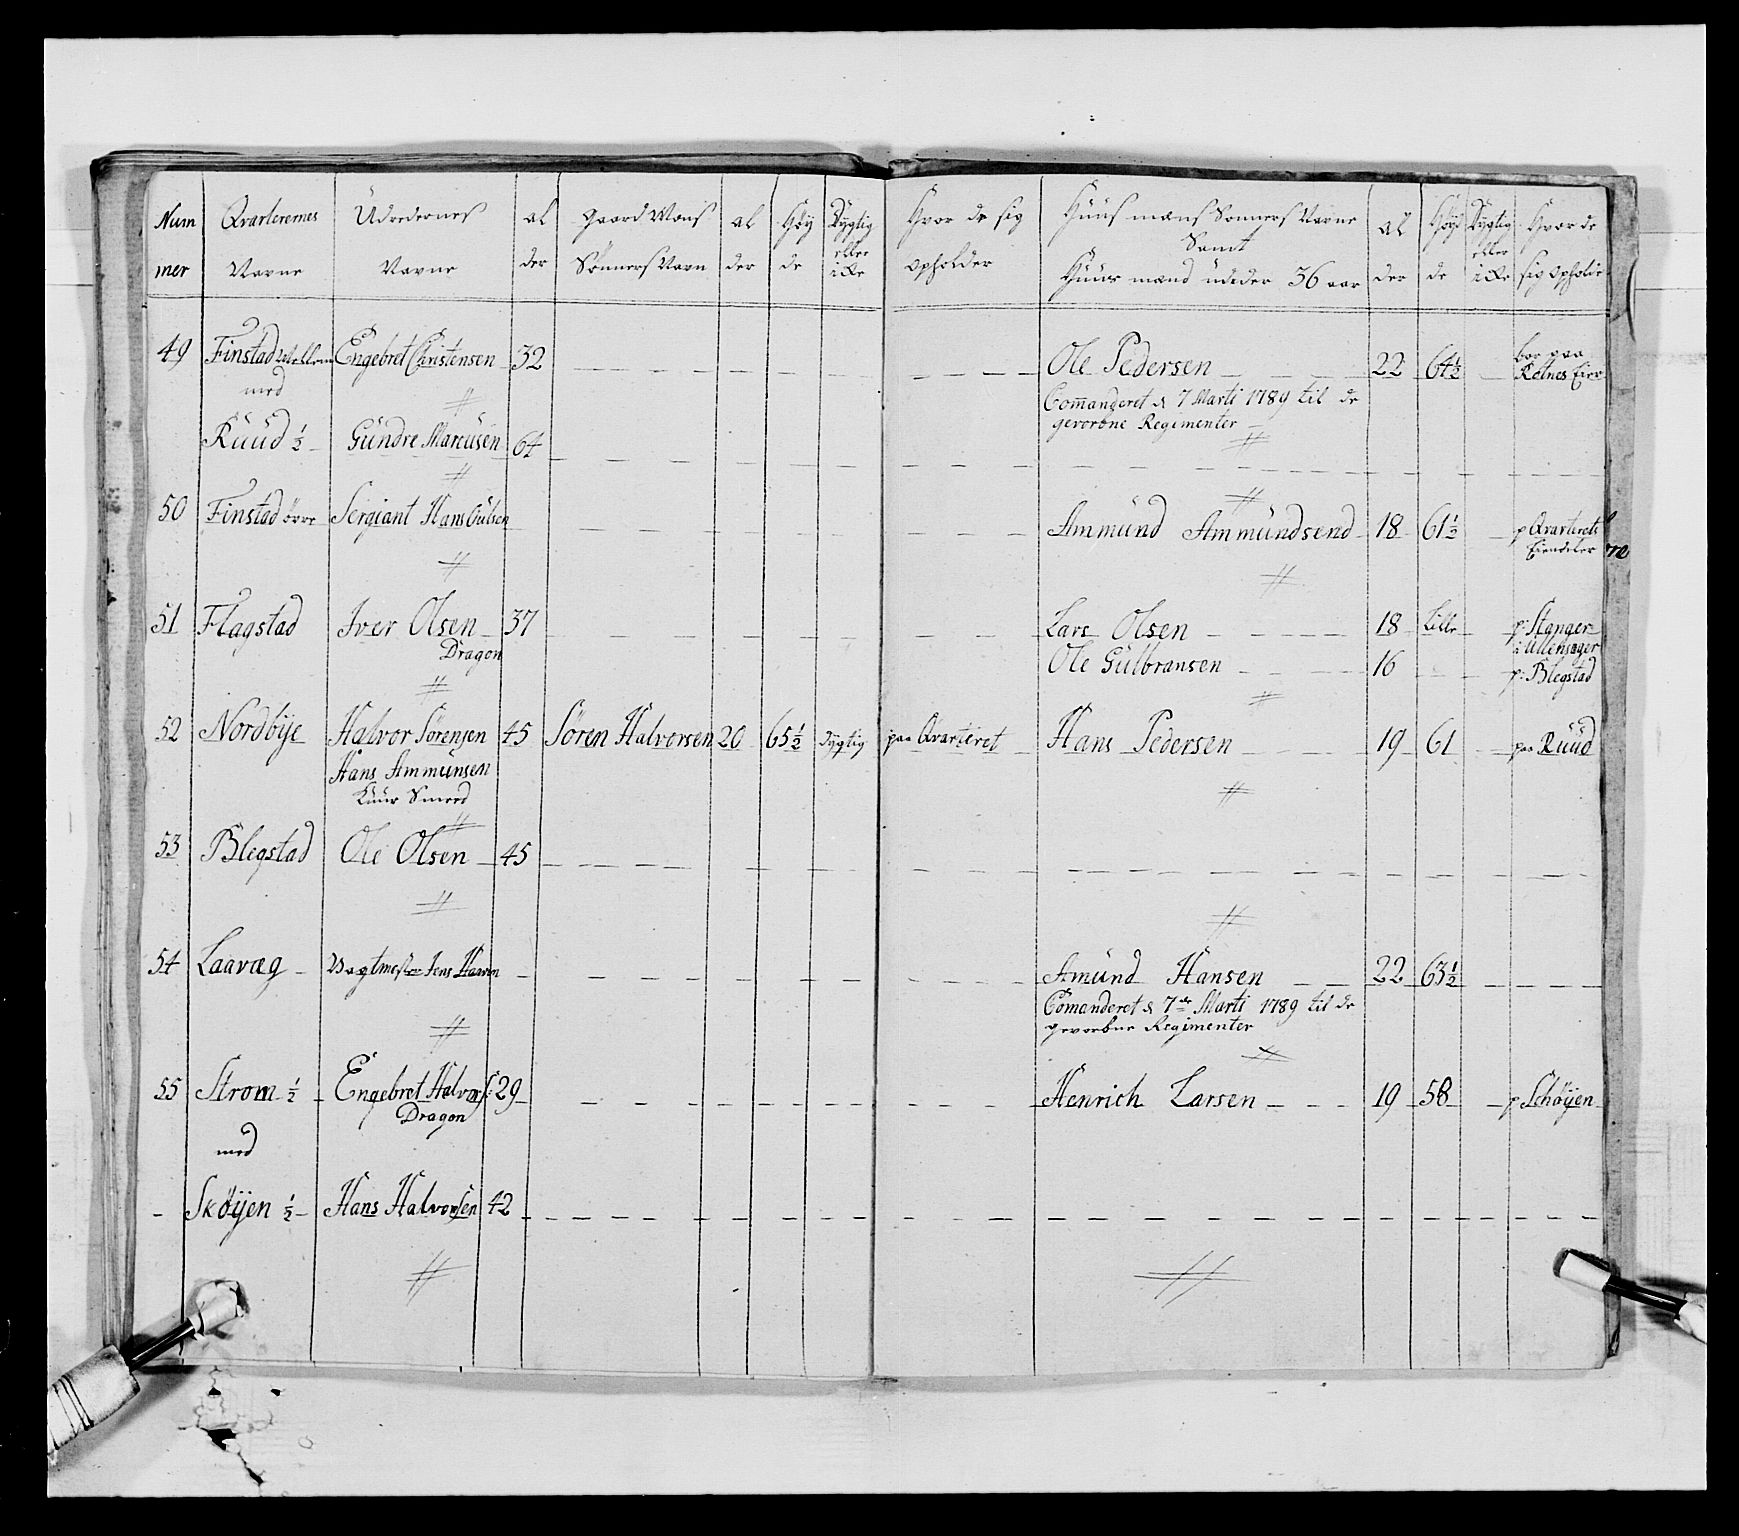 Num Qvarterernes Udredernes al gaard Mans al Höy Dygtig Hvor de sig Huus mans Sönners Navne Al Höyd Dygtig Hvor de
eller Samt eller
mer Navne Navne der Sönners Navn der de icke opholder Huus mænd under 36 aar der de icke sig opholde
49 Finstad Mellem Engebret Christensen 32 Ole Pedersen 22 64½ boe paa
med Commanderet d 7 Marti 1789 til de
Ruud ½ Gundre Marcusen 64 gevorbne Regimenter
50 Finstad övre Sergiant Hans Ammund Ammundsend 18 61½ p Qvarterets
Eiendeler
51 Flagstad Iver Olsen 37 Lars Olsen 18 Lille p: Stanger
Dragon i Ullensager
Ole Gulbransen 16 p: Blegstad
52 Nordbÿe Halvor Sörensen 45 Sören Halvorsen 20 65½ Dygtig paa Qvarteret Hans Pedersen 19 61 paa Ruud
Hans Ammunsen
Smed
53 Blegstad Ole Olsen 45
54 Laavæg Vagtmester Jens Amund Hansen 22 63½
Comanderet d 7de Marti 1789 til de
gevorbne Regimenter
55 Strom ½ Engebret Halvors: 29 Henrich Larsen 19 58 p Schöÿen
Dragon
med
Sköÿen ½ Hans Halvorsen 42